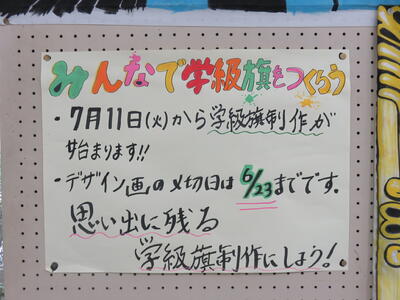 みんなで学級旗をつくろう
・7月11日(火)から学級旗制作が
始まります!!
・デザイン画の〆切日は6/23までです。
思い出に残る
学級旗制作にしよう!